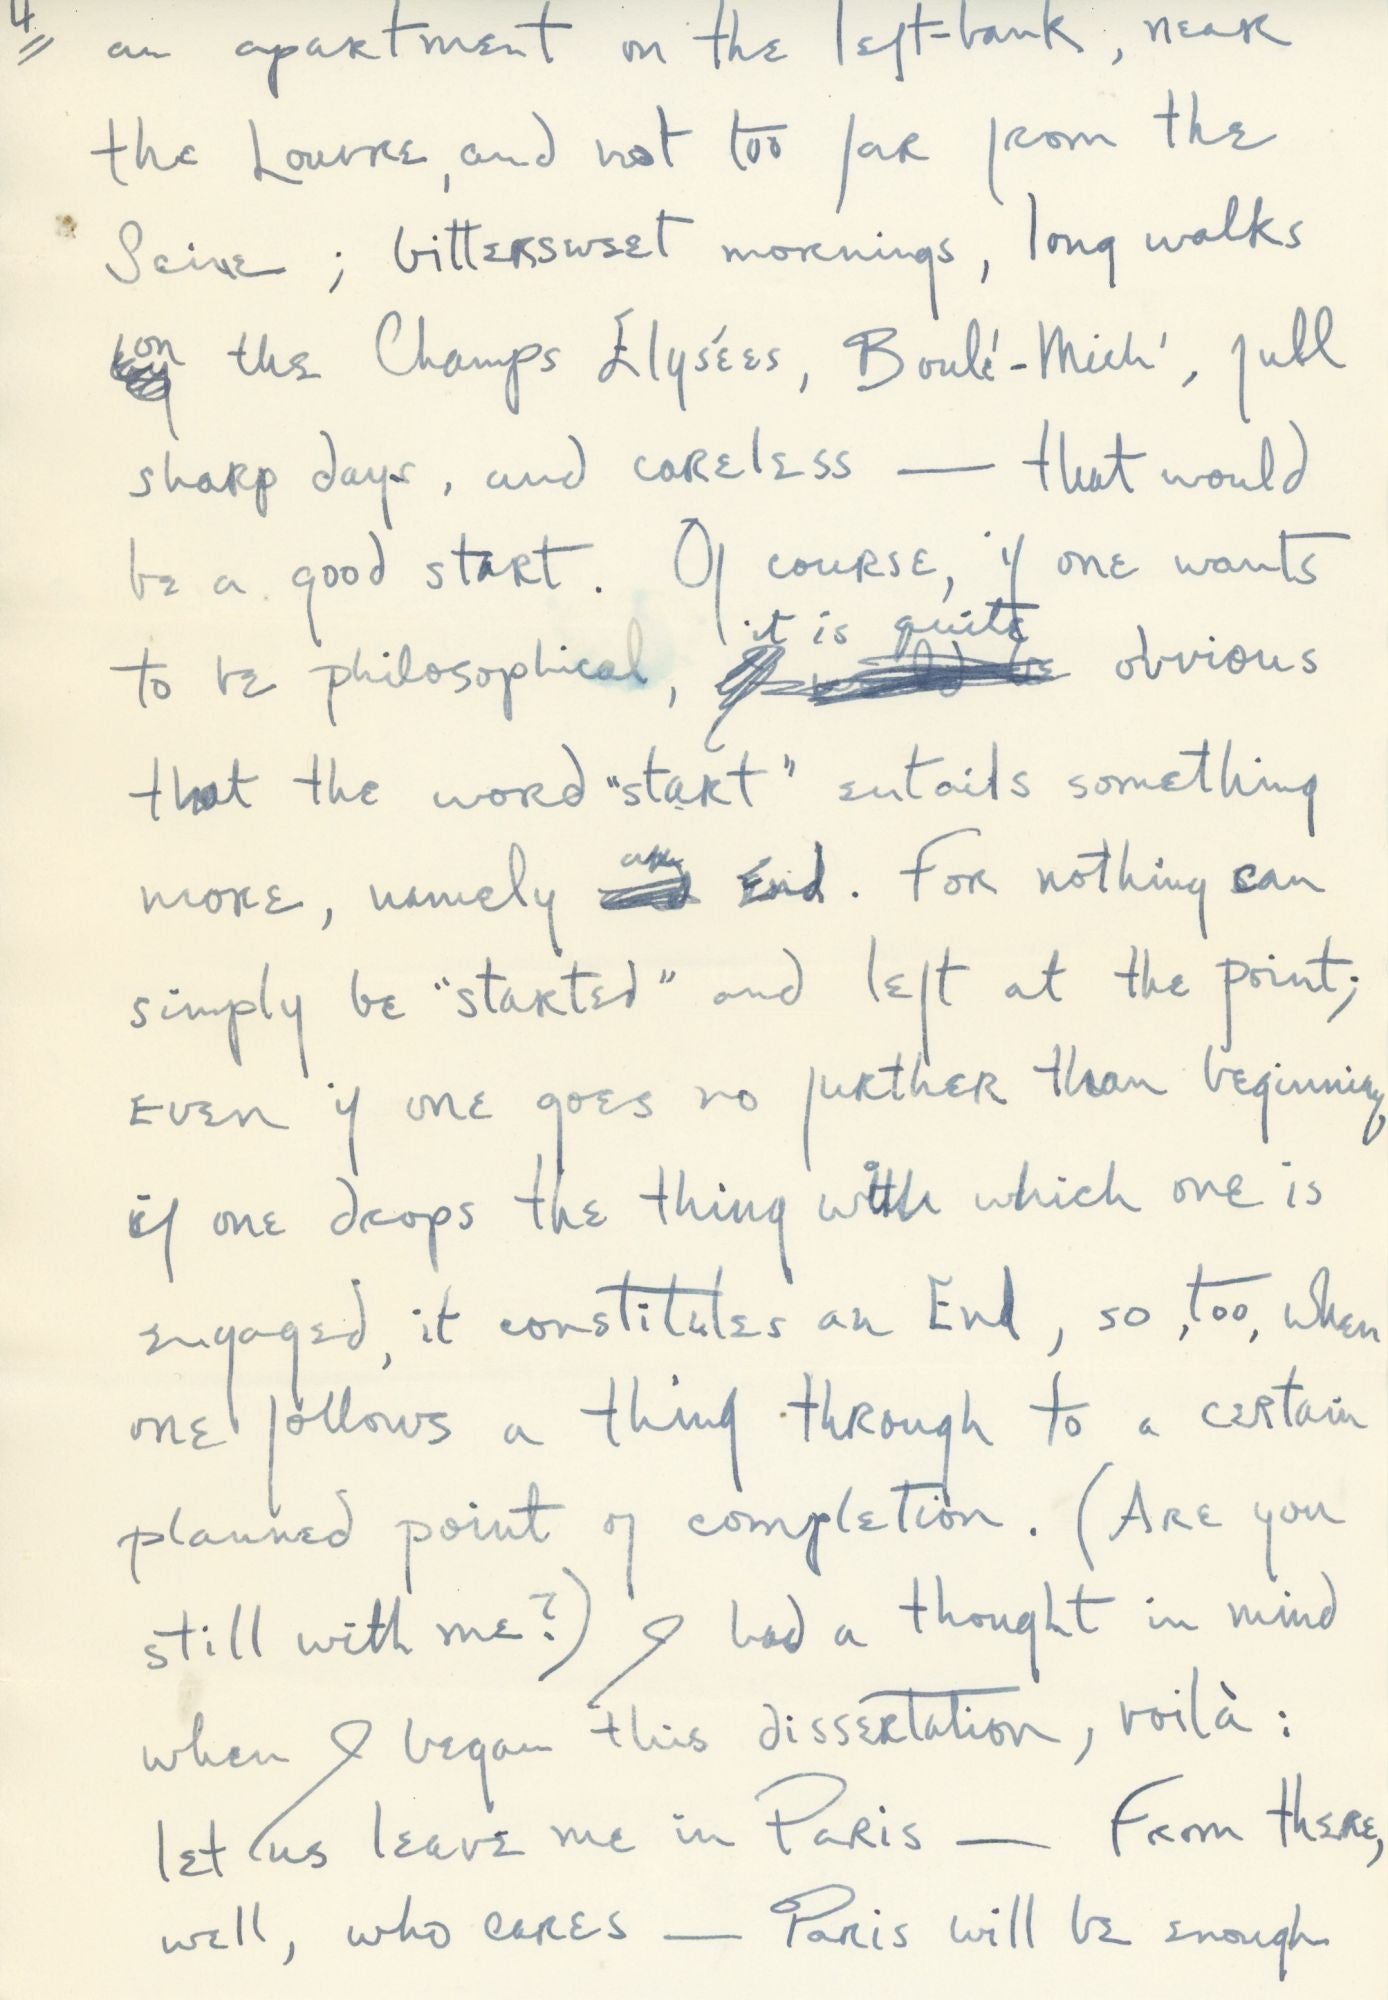 4
an apartment on the left-bank, near
the Louvre, and not too far from the
Seine; bittersweet mornings, long walks
on the Champs Élysées, Boulé-Mich', full
sharp days, and careless — that would
be a good start. Of course, if one wants
to be philosophical, it is quite obvious
that the word "start" entails something
more, namely an End. For nothing can
simply be "started" and left at the point;
Even if one goes no further than beginning,
if one drops the thing with which one is
engaged, it constitutes an End, so, too, when
one follows a thing through to a certain
planned point of completion. (Are you
still with me?) I had a thought in mind
when I began this dissertation, voilà:
let us leave me in Paris — From there,
well, who cares — Paris will be enough